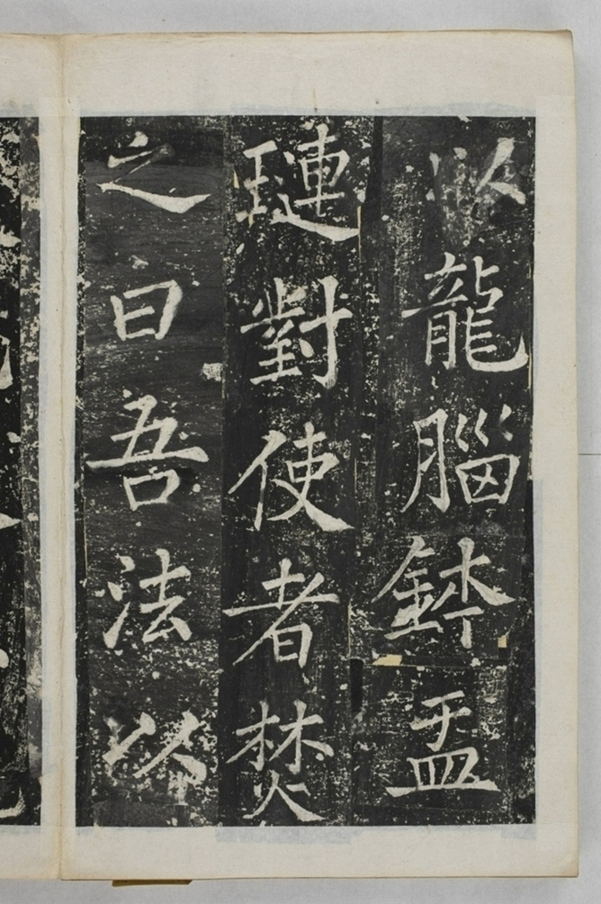 以龍腦鉢盂
璉對使者焚
之曰吾法以